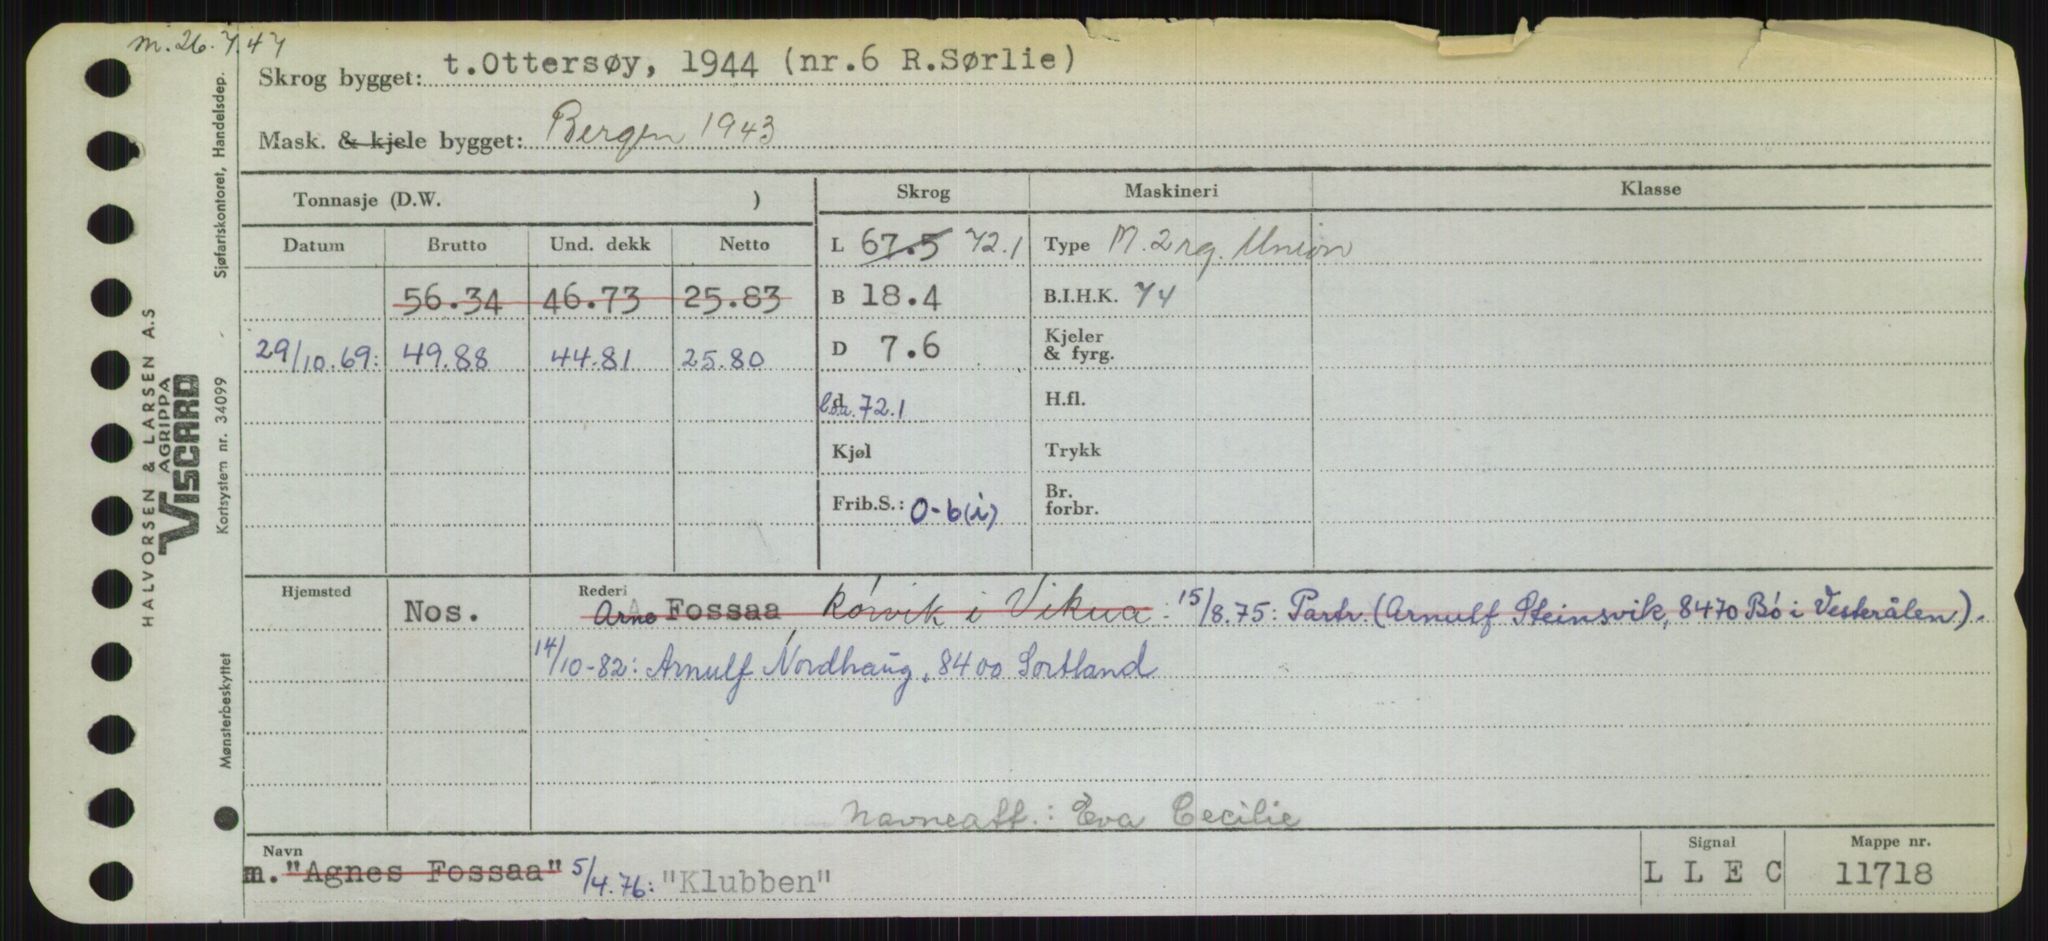 m. 26.7.47
Skrog bygget: t.Ottersøy, 1944 (nr.6 R.Sørlie)
Mask. & kjele bygget: Bergen 1943
Tonnasje (D.W. )
Skrog Maskineri Klasse
Datum Brutto Und. dekk Netto
L 67.5 72.1 Type M. 2 rg. Union
56.34 46.73 25.83
B 18.4 B.I.H.K. 74
29/10.69: 49.88 44.81 25.80
D 7.6 Kjeler & fyrg.
d l.o.a. 72.1 H.fl.
Kjøl Trykk
Frib.S.: 0-6(i) Br. forbr.
Hjemsted Rederi
Nos. Arne Fossaa i Vikna: 15/8.75: Partr. (Arnulf Steinsvik, 8470 Bø i Vesterålen).
14/10-82: Arnulf Nordhaug, 8400 Sortland
Navneatt.: Eva Cecilie
Navn Signal Mappe nr.
m. "Agnes Fossaa" 5/4.76: "Klubben" L L E C 11718
HALVORSEN & LARSEN A.S
AGRIPPA
VISCARD
Mønsterbeskyttet Kortsystem nr. 34099 Sjøfartskontoret, Handelsdep.